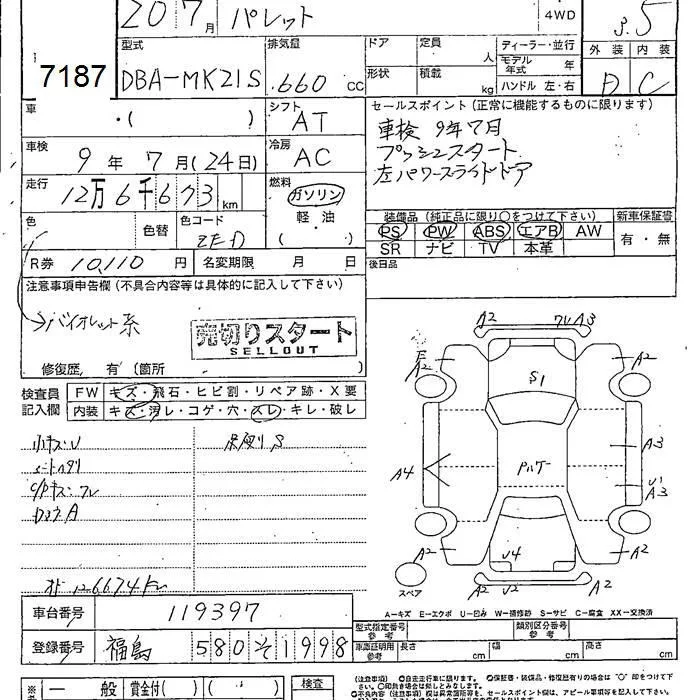 20 7月 パレット 4WD 3.5
7187
型式 排気量 ドア 定員 人 ディーラー・並行 外装 内装
DBA-MK21S .660 cc 形状 積載 kg モデル年式 年 D C
ハンドル 左・右
車 ・( ) シフト AT
セールスポイント(正常に機能するものに限ります)
車検 9年7月
プッシュスタート
左パワースライドドア
車検 9年7月(24日) 冷房 AC
走行 12万6千673km 燃料 ガソリン 軽油 ( )
色 色替 色コード ZED
装備品(純正品に限り○をつけて下さい) 新車保証書
PS PW ABS エアB AW 有・無
SR ナビ TV 本革
R券 10,110円 名変期限 月 日 後日品
注意事項申告欄(不具合内容等は具体的に記入して下さい)
→バイオレット系
売切りスタート
SELLOUT
修復歴, 有(箇所 )
検査員記入欄 FW キズ・飛石・ヒビ割・リペア跡・X要
内装 キズ・汚レ・コゲ・穴・スレ・キレ・破レ
A2 A3
A2 A2
S1
A4 A3
A3
A2 A2
A2
スペア
A-キズ E-エクボ U-凹み W-補修跡 S-サビ C-腐食 XX-交換済
車台番号 119397
登録番号 福島 580 そ 1998
型式指定番号 参考 類別区分番号 参考
車庫証明用 参考 長さ cm 幅 cm 高さ cm
※ 一般 賞金付( ) ( ) 検査
(注意事項)